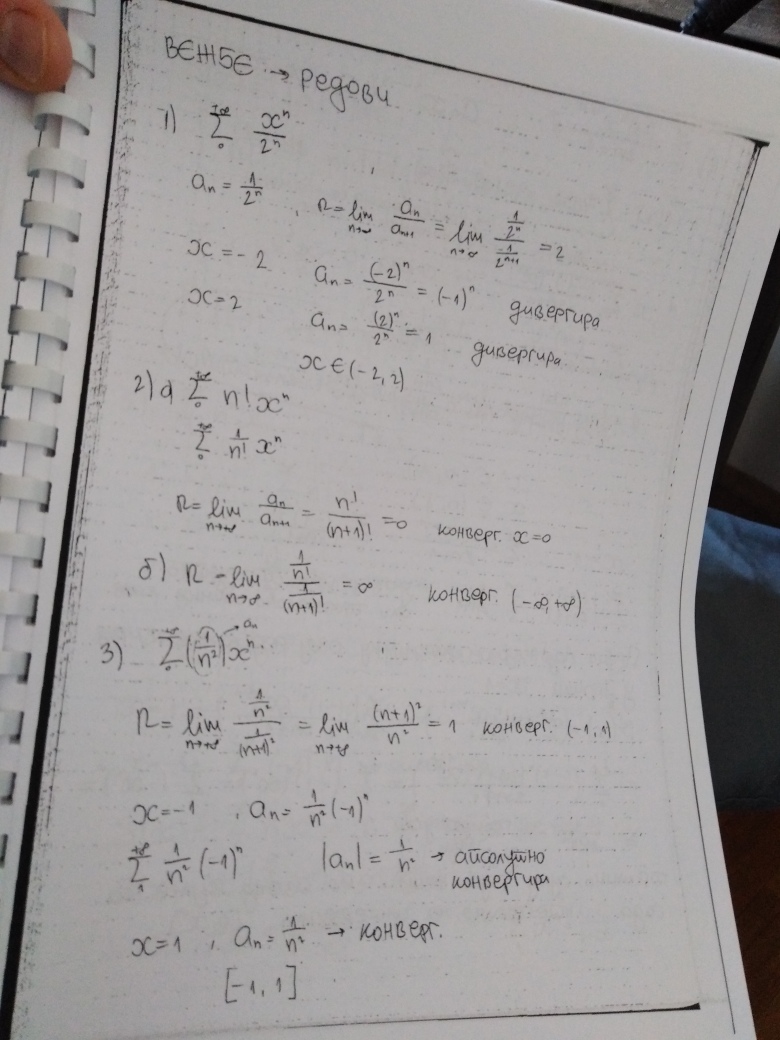 ВЕЖБЕ → редови
1) ∑₀^{+∞} xⁿ/2ⁿ
aₙ = 1/2ⁿ , R = lim_{n→∞} aₙ/aₙ₊₁ = lim_{n→∞} (1/2ⁿ)/(1/2ⁿ⁺¹) = 2
x = -2 aₙ = (-2)ⁿ/2ⁿ = (-1)ⁿ дивергира
x = 2 aₙ = (2)ⁿ/2ⁿ = 1 дивергира
x ∈ (-2, 2)
2) а ∑₀^{+∞} n! xⁿ
∑₀^{+∞} 1/n! xⁿ
R = lim_{n→+∞} aₙ/aₙ₊₁ = n!/(n+1)! = 0 конверг. x = 0
б) R = lim_{n→∞} (1/n!)/(1/(n+1)!) = ∞ конверг. (-∞, +∞)
3) ∑₀^{+∞} (1/n²) xⁿ → aₙ
R = lim_{n→+∞} (1/n²)/(1/(n+1)²) = lim_{n→+∞} (n+1)²/n² = 1 конверг. (-1, 1)
x = -1 , aₙ = 1/n² (-1)ⁿ
∑₁^{+∞} 1/n² (-1)ⁿ |aₙ| = 1/n² → апсолутно
конвергира
x = 1 , aₙ = 1/n² → конверг.
[-1, 1]